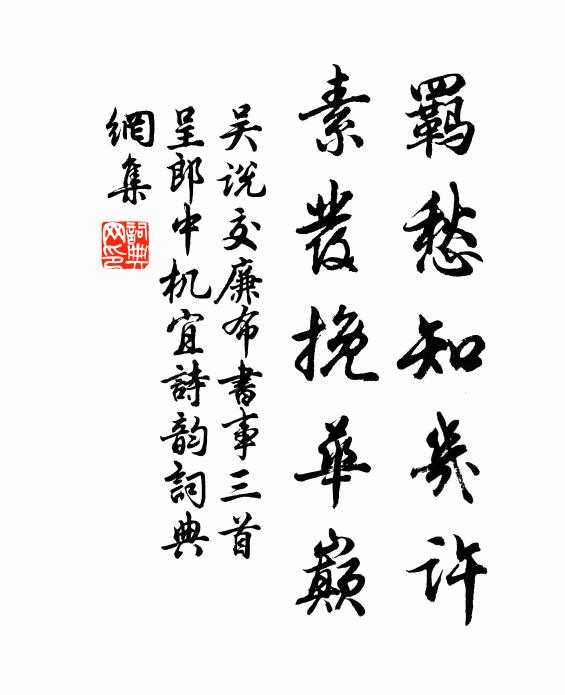 羈愁知幾許
素發挽華巔
吴说交廉布書事三首
呈郎中机宜詩韵詞典
網集
詞典網印